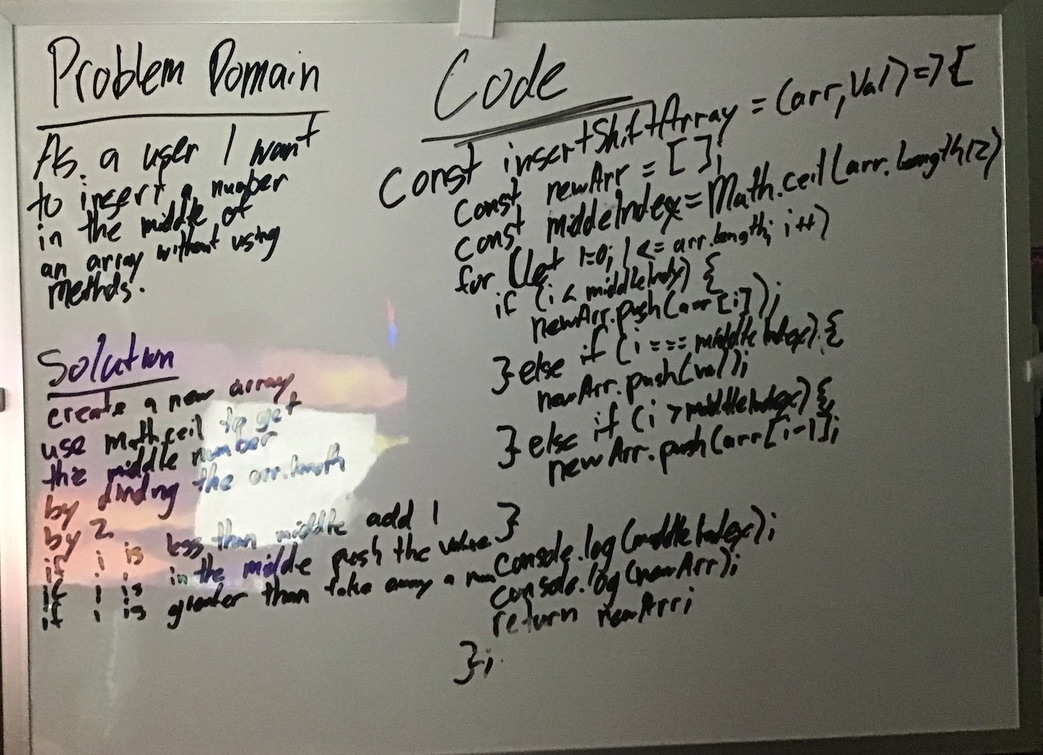 Problem Domain
As a user I want
to insert a number
in the middle of
an array without using
methods.
Solution
create a new array
use math.ceil to get
the middle number
by dividing the arr.length
by 2
if i is less than middle add 1
if i is in the middle push the value
if i is greater than take away a num
Code
Const insertShiftArray = (arr, Val) => {
const newArr = [];
const middeIndex = Math.ceil(arr.length/2)
for (let i=0; i <= arr.length; i++)
if (i < middleIndex) {
newArr.push(arr[i]);
} else if (i === middleIndex) {
newArr.push(val);
} else if (i > middleIndex) {
newArr.push(arr[i-1];
}
console.log(middleIndex);
console.log(newArr);
return newArr;
};